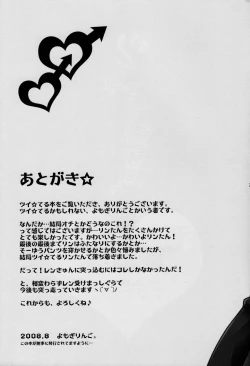 あとがき☆
ツイ☆てる本をご覧いただき、ありがとうございます。
ツイ☆てるかもしれない、よもぎりんごとかいう者です。
なんだか…結局オチとかどうなのこれ！？
って感じではございますが…リンたん をたくさんかけて
とても楽しかったです。かわいいよ…かわいいよリンたん！
最後の最後までリンはふたなりにするかとか…
そーゆうパンツを穿かせるかとか色々悩みましたが、
結局ツイ☆てるリンたんで落ち着きました。
だって！レンきゅんに突っ込むにはコレしかなかったんだ！
と、相変わらずレン受まっしぐらで
今後も突っ走っていきますヽ(´▽`)ﾉ
これからも、よろしくね♪
2008.8 よもぎりんご。
この本が無事に発行されてますように…